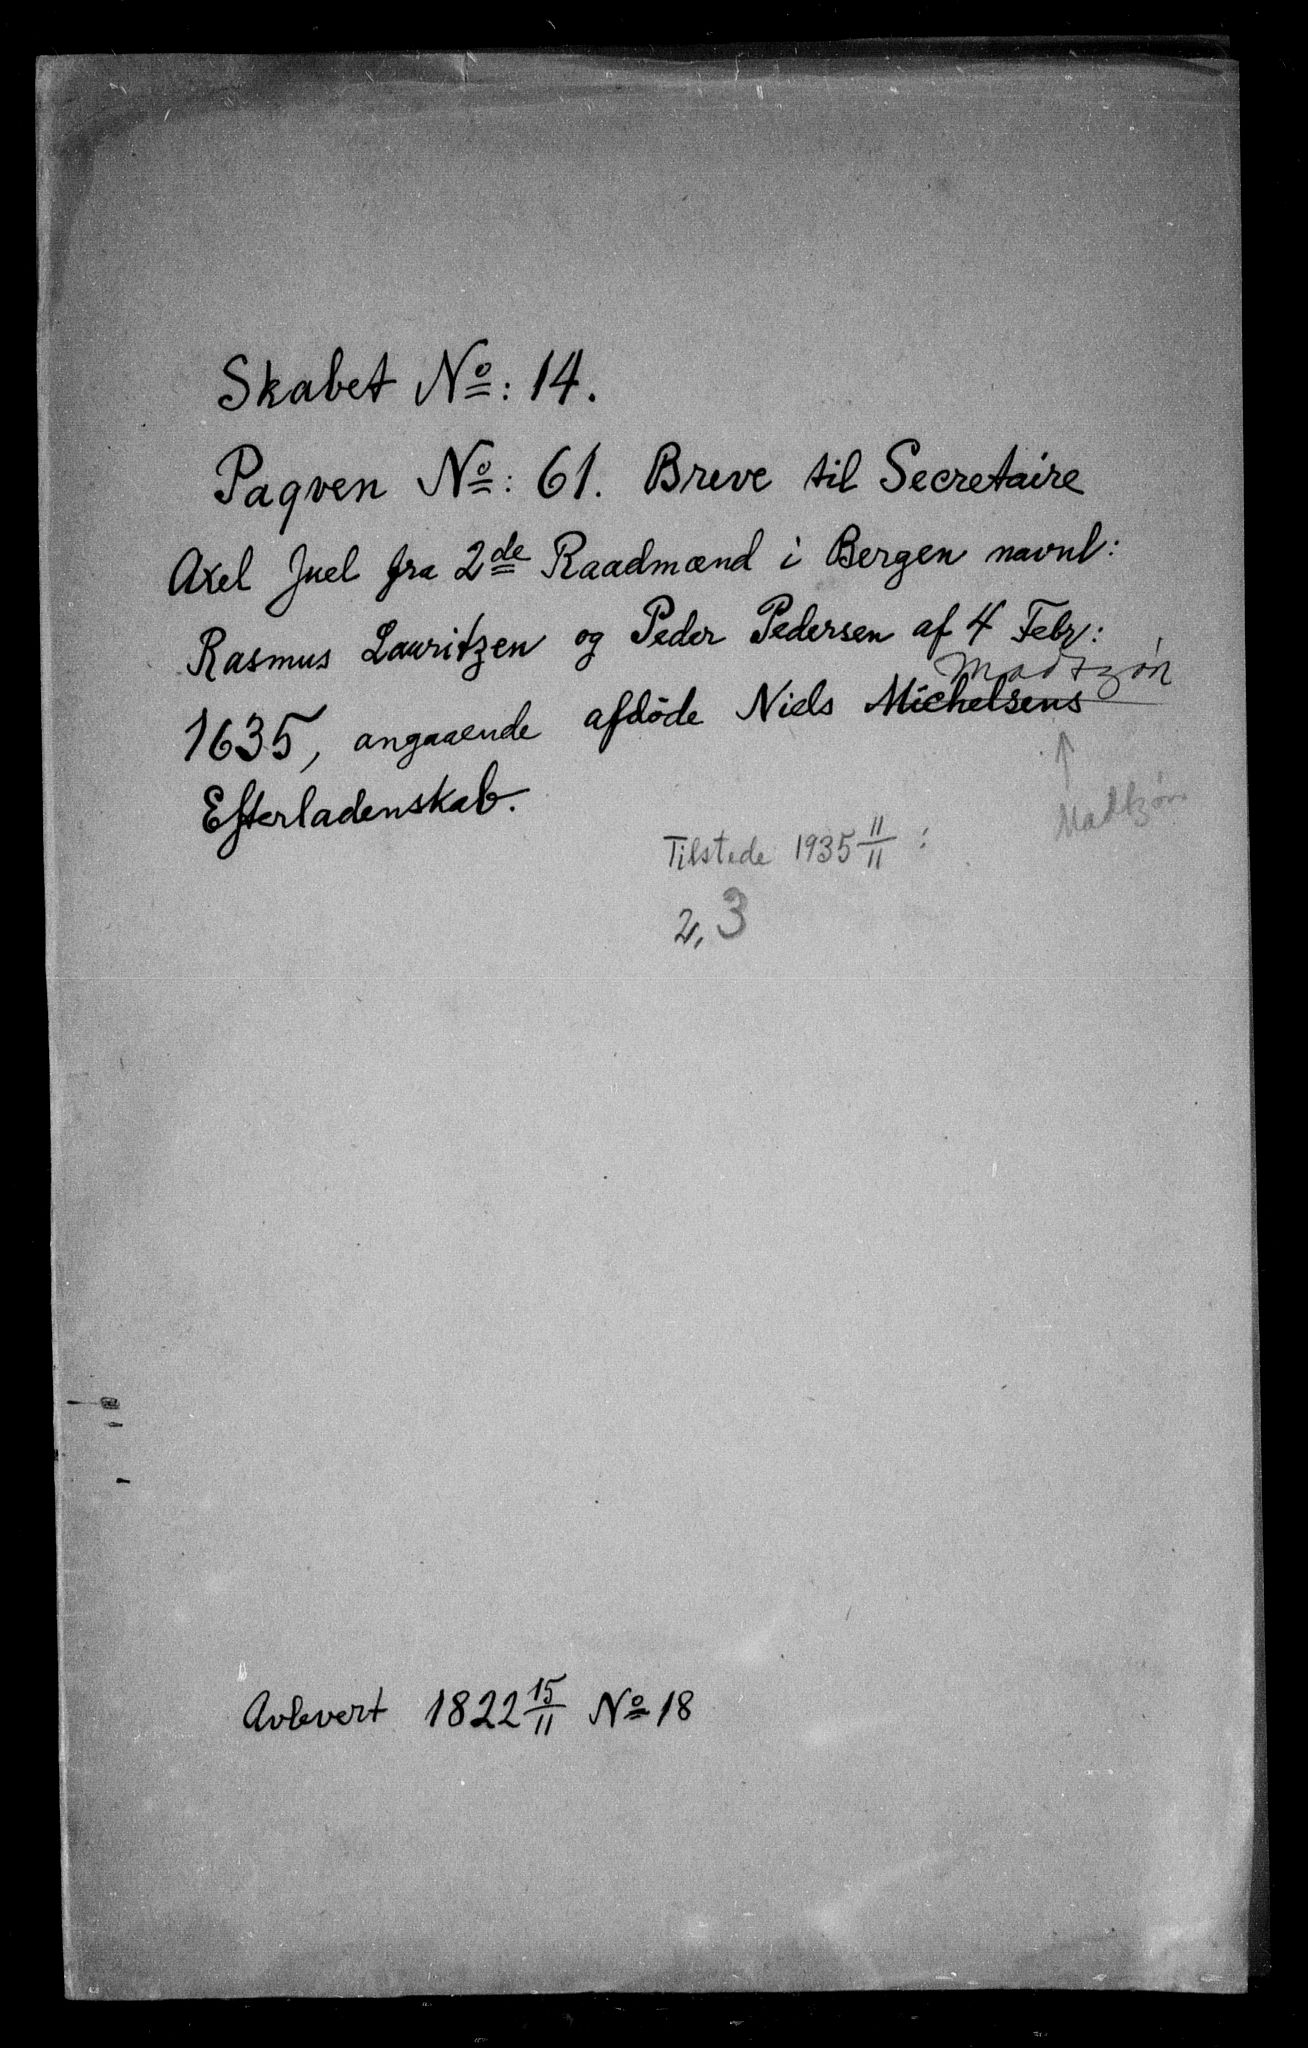 Skabet No: 14.
Paqven No: 61. Breve til Secretaire
Axel Juel fra 2de Raadmænd i Bergen navnl:
Rasmus Lauritzen og Peder Pedersen af 4 Febr:
Madtzøn
1635, angaaende afdøde Niels Michelsens
Efterladenskab.
Madtzøn
Tilstede 1935 11/11 :
2, 3
Avlevert 1822 15/11 No 18